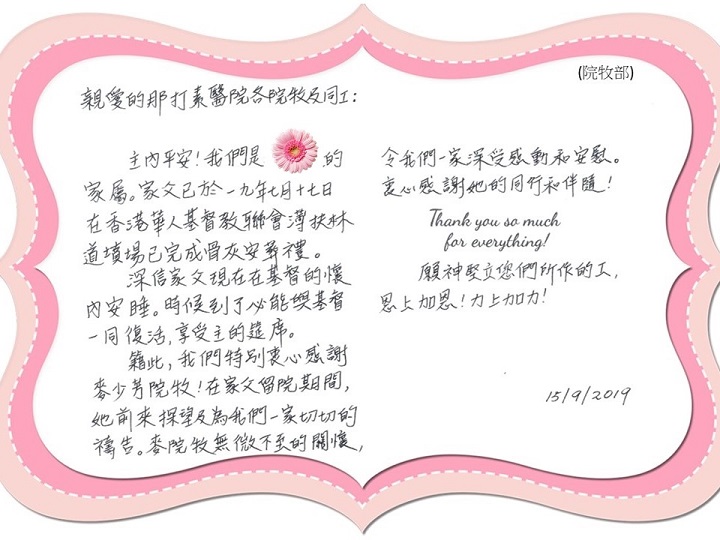 (院牧部)
親愛的那打素醫院各院牧及同工：
主內平安！我們是 的
家屬。家父已於一九年七月十七日
在香港華人基督教聯會薄扶林
道墳場已完成骨灰安葬禮。
深信家父現在在基督的懷
內安睡。時候到了必能與基督
一同復活,享受主的筵席。
籍此，我們特別衷心感謝
麥少芳院牧！在家父留院期間，
她前來探望及為我們一家切切的
禱告。麥院牧無微不至的關懷，
令我們一家深受感動和安慰。
衷心感謝她的同行和伴隨！
Thank you so much
for everything!
願神堅立您們所作的工，
恩上加恩！力上加力！
15/9/2019